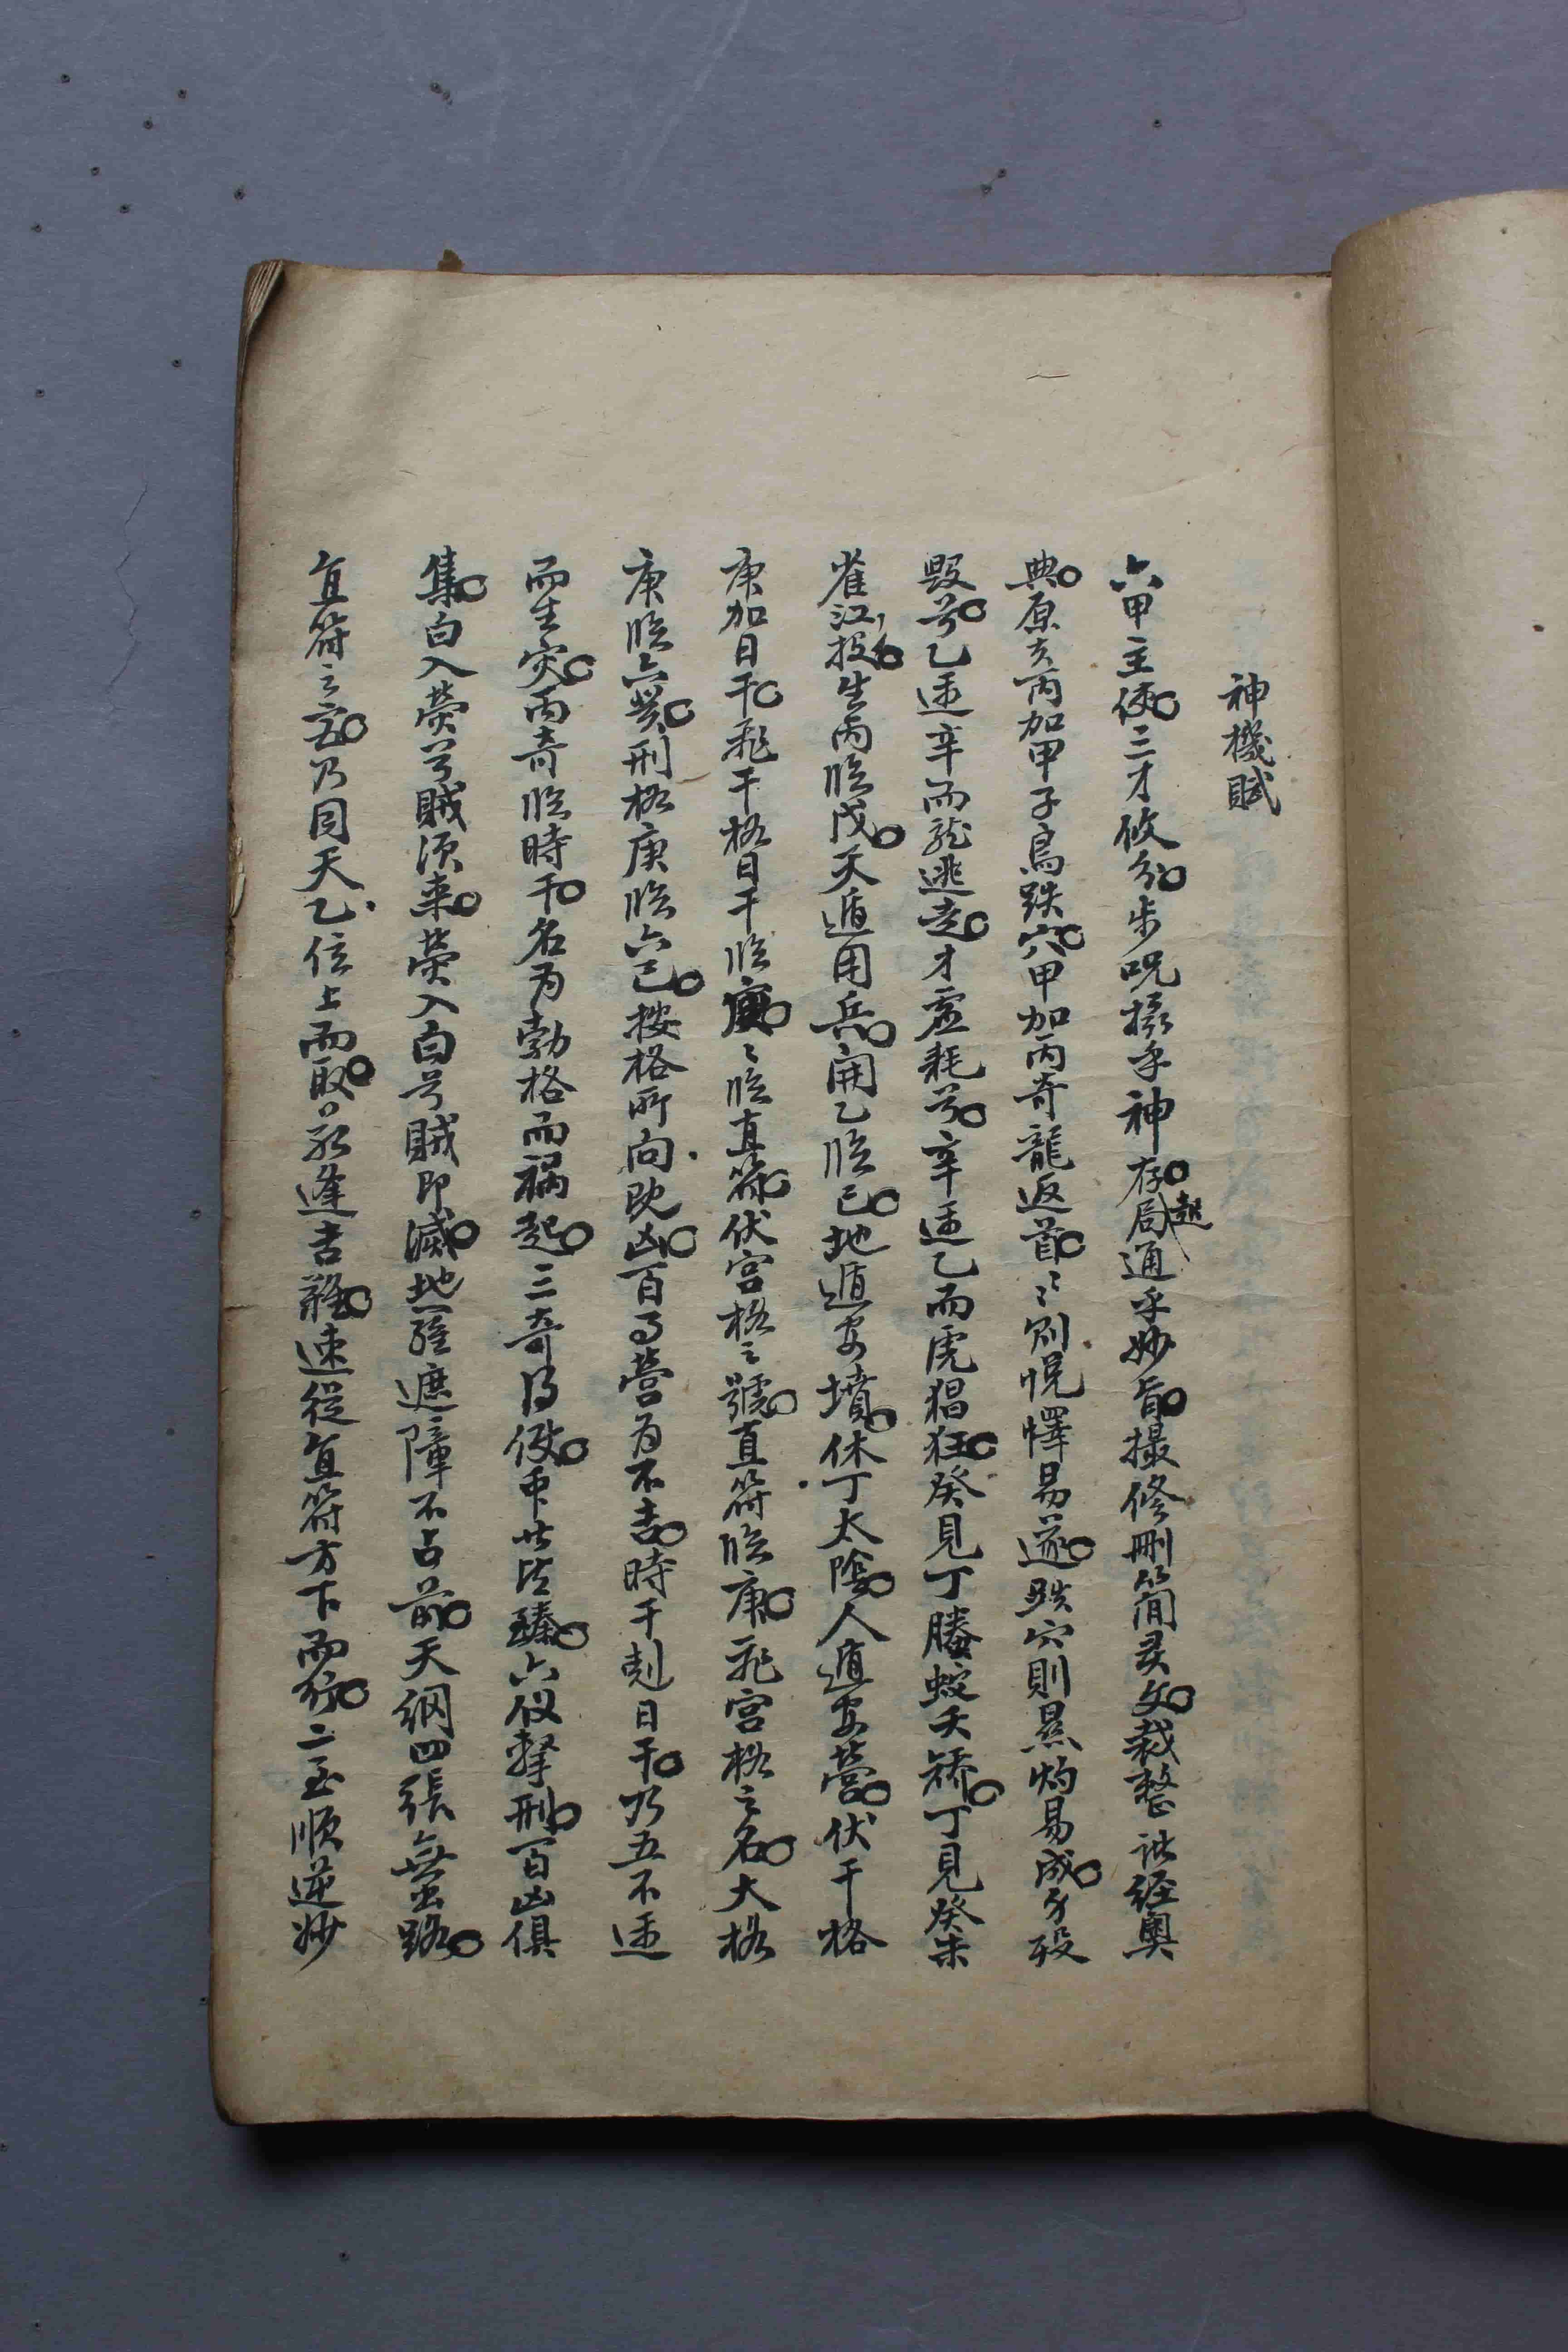 神機賦
六甲主使三才攸分步呪攝乎神存局起通乎妙旨撮修刪簡灵文裁整諸经奥
典原夫丙加甲子鳥跌穴甲加丙奇龍返首〻則悅懌易遂跌穴則顯灼易成身殁
毀兮乙逢辛而龍逃走才虛耗兮辛逢乙而虎猖狂癸見丁螣蛇夭矯丁見癸朱
雀江投生丙臨戊天遁用兵開乙臨己地遁安墳休丁太陰人遁安營伏干格
庚加日干飛干格日干臨庚〻臨直符伏宫格之號直符臨庚飛宫格之名大格
庚臨六癸刑格庚臨六己按格所向既凶百事营为不吉時干剋日干乃五不遇
而生灾丙奇臨時干名为勃格而禍起三奇得使衆善皆臻六仪擊刑百凶俱
集白入荧兮賊須来荧入白兮賊即滅地羅遮障不占前天網四張無出路
直符之宫乃同天乙位上而取若逢吉難速從直符方下而行二至順逆妙